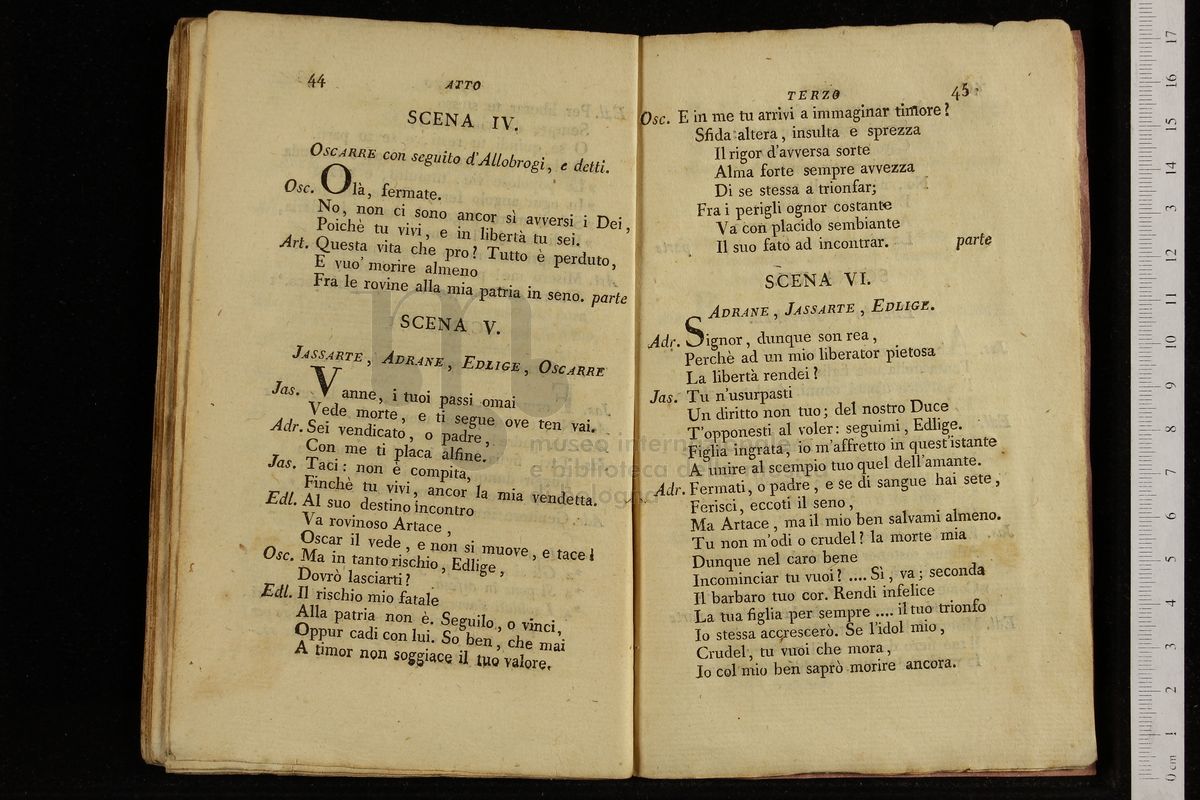 44
ATTO
SCENA IV.
OSCARRE con seguito d'Allobrogi, e detti.
Osc. Olà, fermate.
No, non ci sono ancor sì avversi i Dei,
Poichè tu vivi, e in libertà tu sei.
Art. Questa vita che pro? Tutto è perduto,
E vuo' morire almeno
Fra le rovine alla mia patria in seno. parte
SCENA V.
JASSARTE, ADRANE, EDLIGE, OSCARRE
Jas. Vanne, i tuoi passi omai
Vede morte, e ti segue ove ten vai.
Adr. Sei vendicato, o padre,
Con me ti placa alfine.
Jas. Taci: non è compita,
Finchè tu vivi, ancor la mia vendetta.
Edl. Al suo destino incontro
Va rovinoso Artace,
Oscar il vede, e non si muove, e tace!
Osc. Ma in tanto rischio, Edlige,
Dovrò lasciarti?
Edl. Il rischio mio fatale
Alla patria non è. Seguilo, o vinci,
Oppur cadi con lui. So ben, che mai
A timor non soggiace il tuo valore.
TERZO
45
Osc. E in me tu arrivi a immaginar timore?
Sfida altera, insulta e sprezza
Il rigor d'avversa sorte
Alma forte sempre avvezza
Di se stessa a trionfar;
Fra i perigli ognor costante
Va con placido sembiante
Il suo fato ad incontrar. parte
SCENA VI.
ADRANE, JASSARTE, EDLIGE.
Adr. Signor, dunque son rea,
Perchè ad un mio liberator pietosa
La libertà rendei?
Jas. Tu n'usurpasti
Un diritto non tuo; del nostro Duce
T'opponesti al voler: seguimi, Edlige.
Figlia ingrata, io m'affretto in quest'istante
A unire al scempio tuo quel dell'amante.
Adr. Fermati, o padre, e se di sangue hai sete,
Ferisci, eccoti il seno,
Ma Artace, ma il mio ben salvami almeno.
Tu non m'odi o crudel? la morte mia
Dunque nel caro bene
Incominciar tu vuoi? .... Sì, va; seconda
Il barbaro tuo cor. Rendi infelice
La tua figlia per sempre .... il tuo trionfo
Io stessa accrescerò. Se l'idol mio,
Crudel, tu vuoi che mora,
Io col mio ben saprò morire ancora.
museo internazionale
e biblioteca de
di bologna
0 cm 1 2 3 4 5 6 7 8 9 10 11 12 13 14 15 16 17